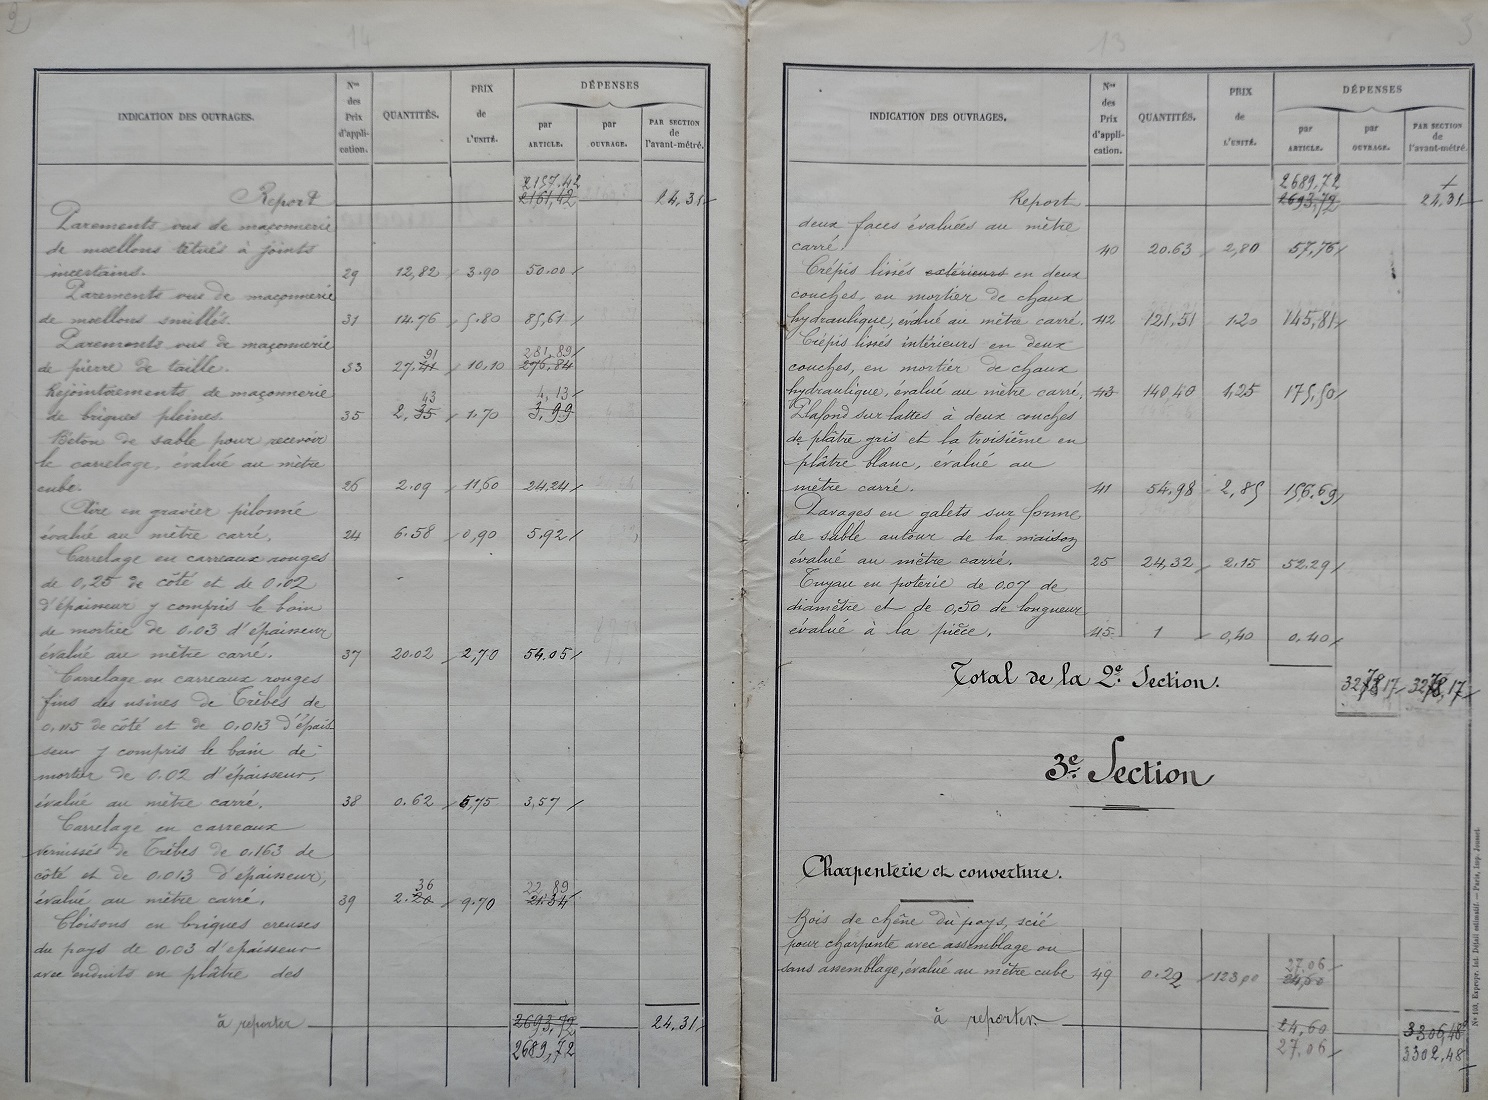 2
14
INDICATION DES OUVRAGES.
Nos des Prix d'appli-cation.
QUANTITÉS.
PRIX de L'UNITÉ.
DÉPENSES
par ARTICLE.
par OUVRAGE.
PAR SECTION de l'avant-métré.
2157.42
Report 2161,42 24,31
Parements vus de maçonnerie
de moellons têtués à joints
incertains. 29 12,82 3.90 50.00
Parements vus de maçonnerie
de moellons smillés. 31 14.76 5.80 85,61
Parements vus de maçonnerie 91 281,89
de pierre de taille. 33 27.41 10,10 276,84
Rejointoiements de maçonnerie 43 4,13
de briques pleines. 35 2.35 1.70 3,99
Béton de sable pour recevoir
le carrelage, évalué au mètre
cube. 26 2.09 11,60 24,24
Aire en gravier pilonné
évalué au mètre carré. 24 6.58 0,90 5.92
Carrelage en carreaux rouges
de 0,25 de côté et de 0.02
d'épaisseur y compris le bain
de mortier de 0.03 d'épaisseur
évalué au mètre carré. 37 20.02 2,70 54.05
Carrelage en carreaux rouges
fins des usines de Trèbes de
0,115 de côté et de 0.013 d'épais
seur y compris le bain de
mortier de 0.02 d'épaisseur,
évalué au mètre carré. 38 0.62 5,75 3,57
Carrelage en carreaux
vernissés de Trèbes de 0,163 de
côté et de 0.013 d'épaisseur, 36 22,89
évalué au mètre carré. 39 2.20 9.70 21.34
Cloisons en briques creuses
du pays de 0.03 d'épaisseur
avec enduits en plâtre des
à reporter 2693,72 24.31
2689,72
13
3
INDICATION DES OUVRAGES.
Nos des Prix d'appli-cation.
QUANTITÉS.
PRIX de L'UNITÉ.
DÉPENSES
par ARTICLE.
par OUVRAGE.
PAR SECTION de l'avant-métré.
2689,72
Report 2693,72 24.31
deux faces évaluées au mètre
carré. 40 20.63 2,80 57,76
Crépis lissés extérieurs en deux
couches, en mortier de chaux
hydraulique, évalué au mètre carré. 42 121,51 1.20 145,81
Crépis lissés intérieurs en deux
couches, en mortier de chaux
hydraulique, évalué au mètre carré. 43 140.40 1,25 175,50
Plafond sur lattes à deux couches
de plâtre gris et la troisième en
plâtre blanc, évalué au
mètre carré. 41 54,98 2,85 156.69
Pavages en galets sur forme
de sable autour de la maison
évalué au mètre carré. 25 24,32 2.15 52.29
Tuyau en poterie de 0.07 de
diamètre et de 0,50 de longueur
évalué à la pièce. 45 1 0,40 0.40
Total de la 2e Section. 3278,17 3278,17
3e Section
Charpenterie et couverture.
Bois de chêne du pays, scié
pour charpente avec assemblage ou 27.06
sans assemblage, évalué au mètre cube 49 0.22 123,00 24,60
à reporter. 24,60 3306,48
27.06 3302,48
No 103. Expropr. int. Détail estimatif. — Paris, Imp. Jousset.